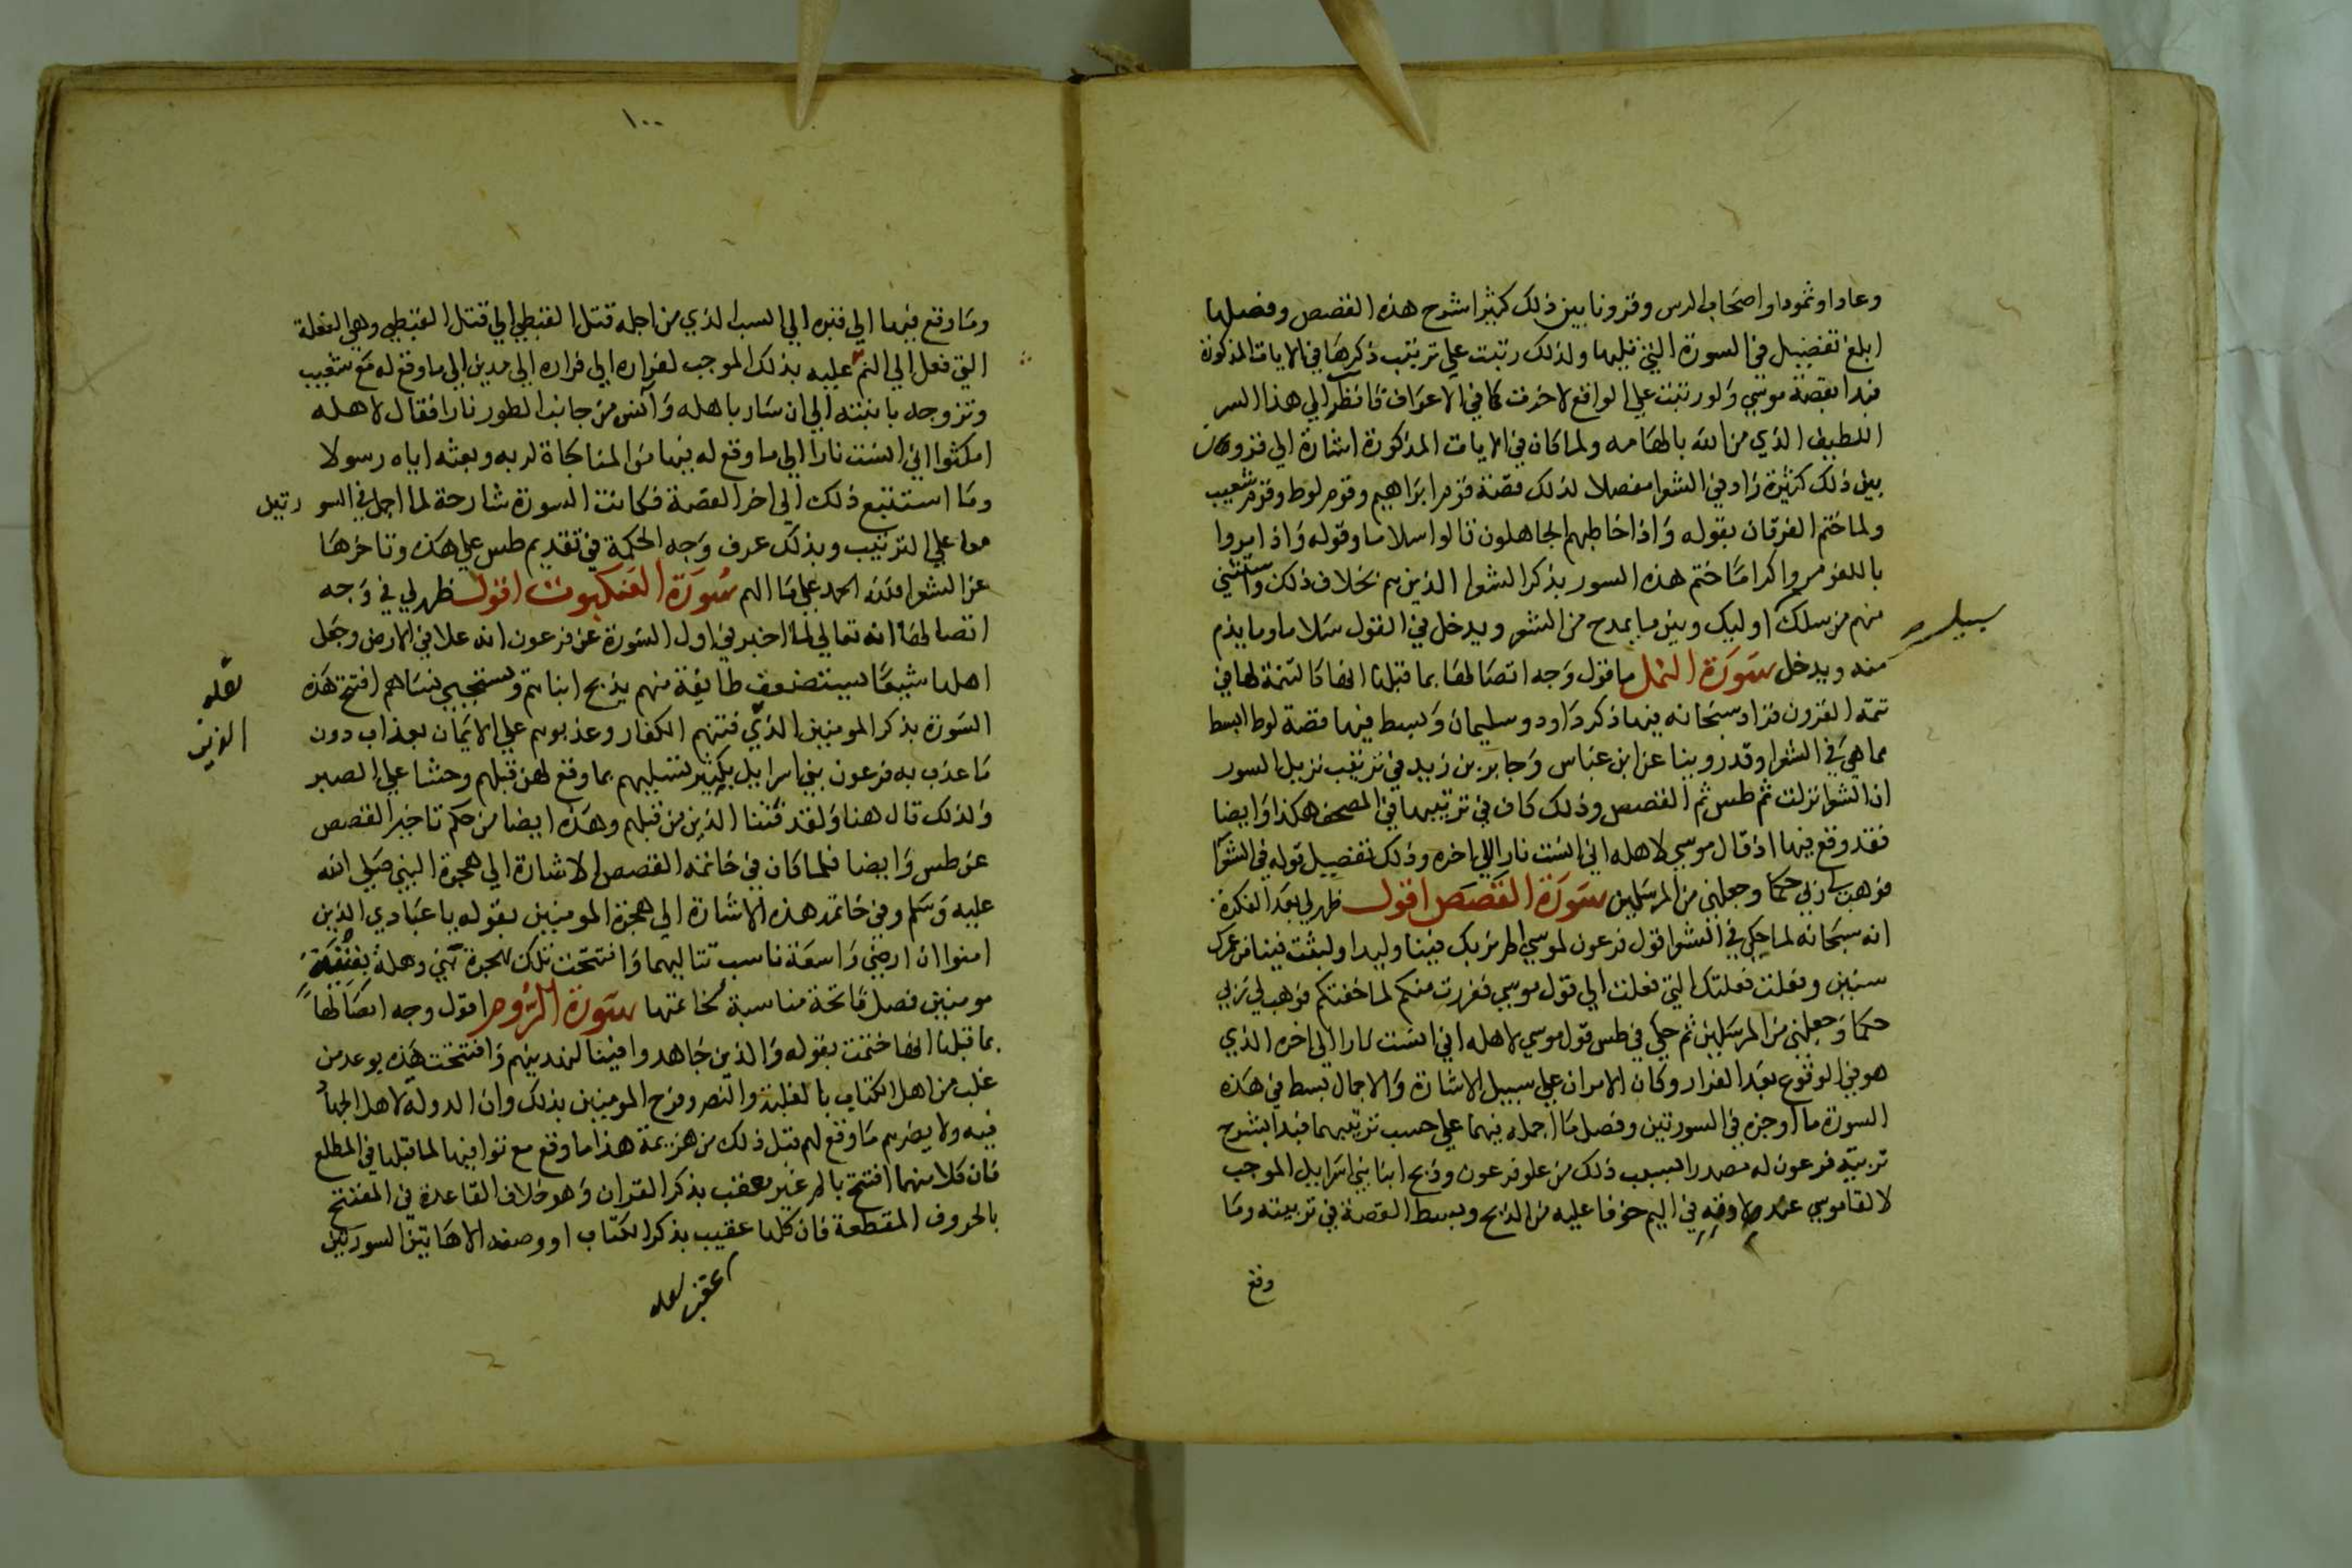 وعادا وثمودا واصحاب الرس وقرونا بين ذلك كثيرا شرح هذه القصص وفصلها
ابلغ تفضيل في السورة التي تليها ولذلك رتبت علي ترتيب ذكرها في الايات المذكورة
فبدا بقصة موسي ولو رتبت علي الواقع لاخرت كما في الاعراف فانظر الي هذا السر
اللطيف الذي من الله بالهامه ولما كان في الايات المذكورة اشارة الي قرون
بين ذلك كثيرة زاد في الشعرا مفصلا لذلك قصة قوم ابراهيم وقوم لوط وقوم شعيب
ولما ختم الفرقان بقوله واذا خاطبهم الجاهلون قالوا سلاما وقوله واذا مروا
باللغو مروا كراما ختم هذه السور بذكر الشعرا الذين هم بخلاف ذلك واستثني
منهم من سلك اوليك وبين ما يمدح من الشعر ويدخل في القول سلاما وما يذم
سبيل
منه ويدخل سورة النمل ما قول وجه اتصالها بما قبلها انها كالتتمة لها في
تتمة القرون فزاد سبحانه فيها ذكر داود وسليمان وبسط فيها قصة لوط ابسط
مما هي في الشعرا وقد روينا عن ابن عباس وجابر بن زيد في ترتيب نزيل السور
ان الشعرا نزلت ثم طس ثم القصص وذلك كاف في ترتيبها في المصحف هكذا وايضا
فقد وقع فيها اذ قال موسي لاهله اني انست نارا الي اخره وذلك تفضيل قوله في الشعرا
فوهب لي ربي حكما وجعلني من المرسلين سورة القصص اقول ظهر لي بعد الفكرة
انه سبحانه لما حكي في الشعرا قول فرعون لموسي الم نربك فينا وليدا ولبثت فينا من عمرك
سنين وفعلت فعلتك التي فعلت الي قول موسي ففررت منكم لما خفتكم فوهب لي ربي
حكما وجعلني من المرسلين ثم حكي في طس قول موسي لاهله اني انست نارا الي اخره الذي
هو في الوقوع بعد الفرار وكان الامران علي سبيل الاشارة والاجمال بسط في هذه
السورة ما اوجزه في السورتين وفصل ما اجمله فيهما علي حسب ترتيبهما فبدا بشرح
تربية فرعون له مصدرا بسبب ذلك من علو فرعون وذبح ابنا بني اسرايل الموجب
لالقا موسي عند ولادته في اليم خوفا عليه من الذبح وبسط القصة في تربيته وما
وقع
١٠٠
وما وقع فيها الي كبره الي السبب الذي من اجله قتل القبطي الي قتل القبطي وهي الفعلة
التي فعل الي النم عليه بذلك الموجب لفراره الي فراره الي مدين الي ما وقع له مع شعيب
وتزوجه بابنته الي ان سار باهله وآنس من جانب الطور نارا فقال لاهله
امكثوا اني انست نارا الي ما وقع له فيها من المناجاة لربه وبعثه اياه رسولا
وما استتبع ذلك الي اخر القصة فكانت السورة شارحة لما اجمل في السو رتين
معا علي الترتيب وبذلك عرف وجه الحكمة في تقديم طس علي هذه وتاخرها
عن الشعرا فلله الحمد علي ما الهم سورة العنكبوت اقول ظهر لي في وجه
اتصالها انه تعالي لما اخبر في اول السورة عن فرعون انه علا في الارض وجعل
اهلها شيعا يستضعف طايفة منهم يذبح ابناهم ويستحيي نساهم افتتح هذه
السورة بذكر المومنين الذي فتنهم الكفار وعذبوهم علي الايمان بعذاب دون
لعله
الذين
ما عذب به فرعون بني اسرايل بكثير تسلية لهم بما وقع لمن قبلهم وحثا علي الصبر
ولذلك قال هنا ولقد فتنا الذين من قبلهم وهذه ايضا من حكم تاخير القصص
عن طس وايضا فلما كان في خاتمة القصص الاشارة الي هجرة النبي صلي الله
عليه وسلم وفي خاتمة هذه الاشارة الي هجرة المومنين بقوله يا عبادي الذين
امنوا ان ارضي واسعة ناسب تتاليهما وافتتحت تلك
مومنين فصل فاتحة مناسبة لخاتمتها سورة الروم اقول وجه اتصالها
بما قبلها انها ختمت بقوله والذين جاهدوا فينا لنهدينهم وافتتحت هذه بوعد من
غلب من اهل الكتاب بالغلبة والنصر وفرح المومنين بذلك وان الدولة لاهل الجهاد
فيه ولا يضرهم ما وقع لهم قبل ذلك من هزيمة هذا ما وقع مع تواخيها لما قبلها في المطلع
فان كلا منهما افتتح بالم غير معقب بذكر القران وهو خلاف القاعدة في المفتتح
بالحروف المقطعة فان كلها عقيب بذكر الكتاب او وصفه الا هاتين السورتين
عقب لعله